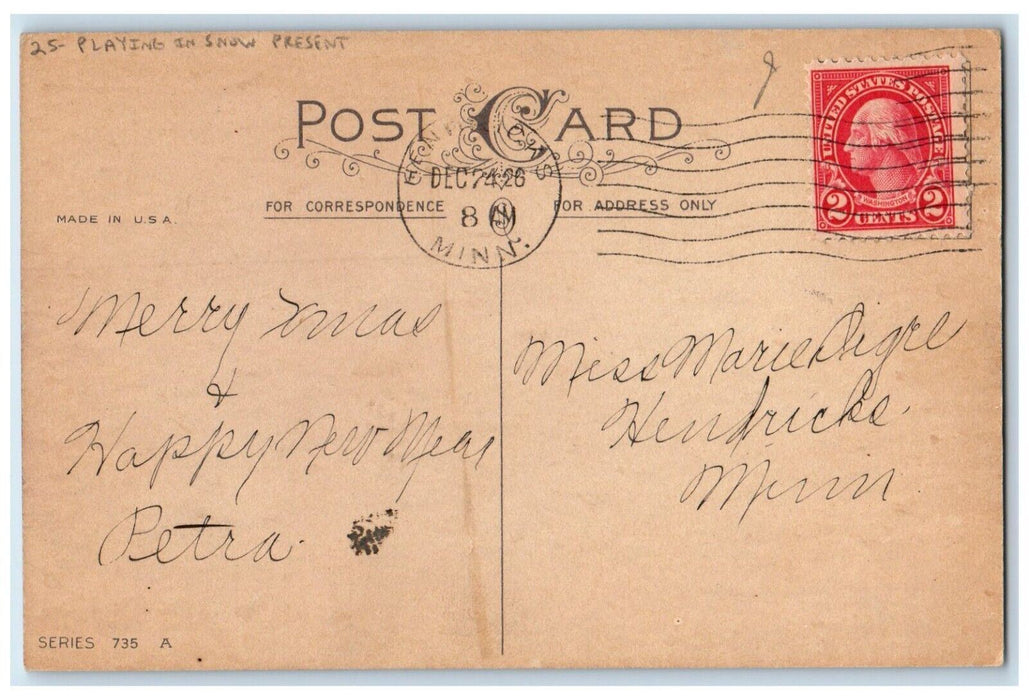 25- PLAYING IN SNOW PRESENT
POST CARD
UNITED STATES POSTAGE
WASHINGTON
2 CENTS 2
DEC 24 26
8 AM
MINN.
MADE IN U.S.A.
FOR CORRESPONDENCE
FOR ADDRESS ONLY
Merry Xmas
&
Happy New Year
Petra.
Miss Marie
Hendricks.
Minn
SERIES 735 A